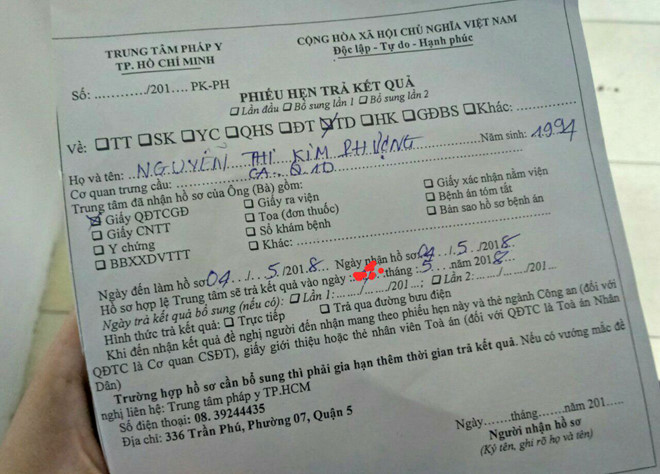 TRUNG TÂM PHÁP Y
TP. HỒ CHÍ MINH
CỘNG HÒA XÃ HỘI CHỦ NGHĨA VIỆT NAM
Độc lập - Tự do - Hạnh phúc
Số: ............/201.... PK-PH
PHIẾU HẸN TRẢ KẾT QUẢ
☐ Lần đầu ☐ Bổ sung lần 1 ☐ Bổ sung lần 2
Về: ☐TT ☐SK ☐YC ☐QHS ☐ĐT ☑TD ☐HK ☐GĐBS ☐Khác:............
Họ và tên: NGUYỄN THỊ KIM PHƯỢNG Năm sinh: 1991
Cơ quan trưng cầu: CA. Q.10
Trung tâm đã nhận hồ sơ của Ông (Bà) gồm:
☑ Giấy QĐTCGĐ ☐ Giấy ra viện ☐ Giấy xác nhận nằm viện
☐ Giấy CNTT ☐ Toa (đơn thuốc) ☐ Bệnh án tóm tắt
☐ Y chứng ☐ Sổ khám bệnh ☐ Bản sao hồ sơ bệnh án
☐ BBXXDVTTT ☐ Khác: ............
Ngày đến làm hồ sơ 04 / 5 /2018. Ngày nhận hồ sơ: 04 / 5 /2018.
Hồ sơ hợp lệ Trung tâm sẽ trả kết quả vào ngày : tháng : 5 năm 2018.
Ngày trả kết quả bổ sung (nếu có): ☐ Lần 1: ...../...../201...; ☐ Lần 2: ...../...../201...
Hình thức trả kết quả: ☐ Trực tiếp ☐ Trả qua đường bưu điện
Khi đến nhận kết quả đề nghị người đến nhận mang theo phiếu hẹn này và thẻ ngành Công an (đối với
QĐTC là Cơ quan CSĐT), giấy giới thiệu hoặc thẻ nhân viên Toà án (đối với QĐTC là Toà án Nhân
Dân)
Trường hợp hồ sơ cần bổ sung thì phải gia hạn thêm thời gian trả kết quả. Nếu có vướng mắc đề
nghị liên hệ: Trung tâm pháp y TP.HCM
Số điện thoại: 08. 39244435
Địa chỉ: 336 Trần Phú, Phường 07, Quận 5
Ngày......tháng......năm 201....
Người nhận hồ sơ
(Ký tên, ghi rõ họ và tên)